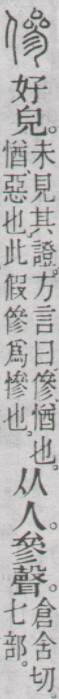 傪
好皃。
未見其證。方言曰。傪、惽也。
惽、惡也。此假傪爲慘也。
从人。參聲。
倉含切
七部。